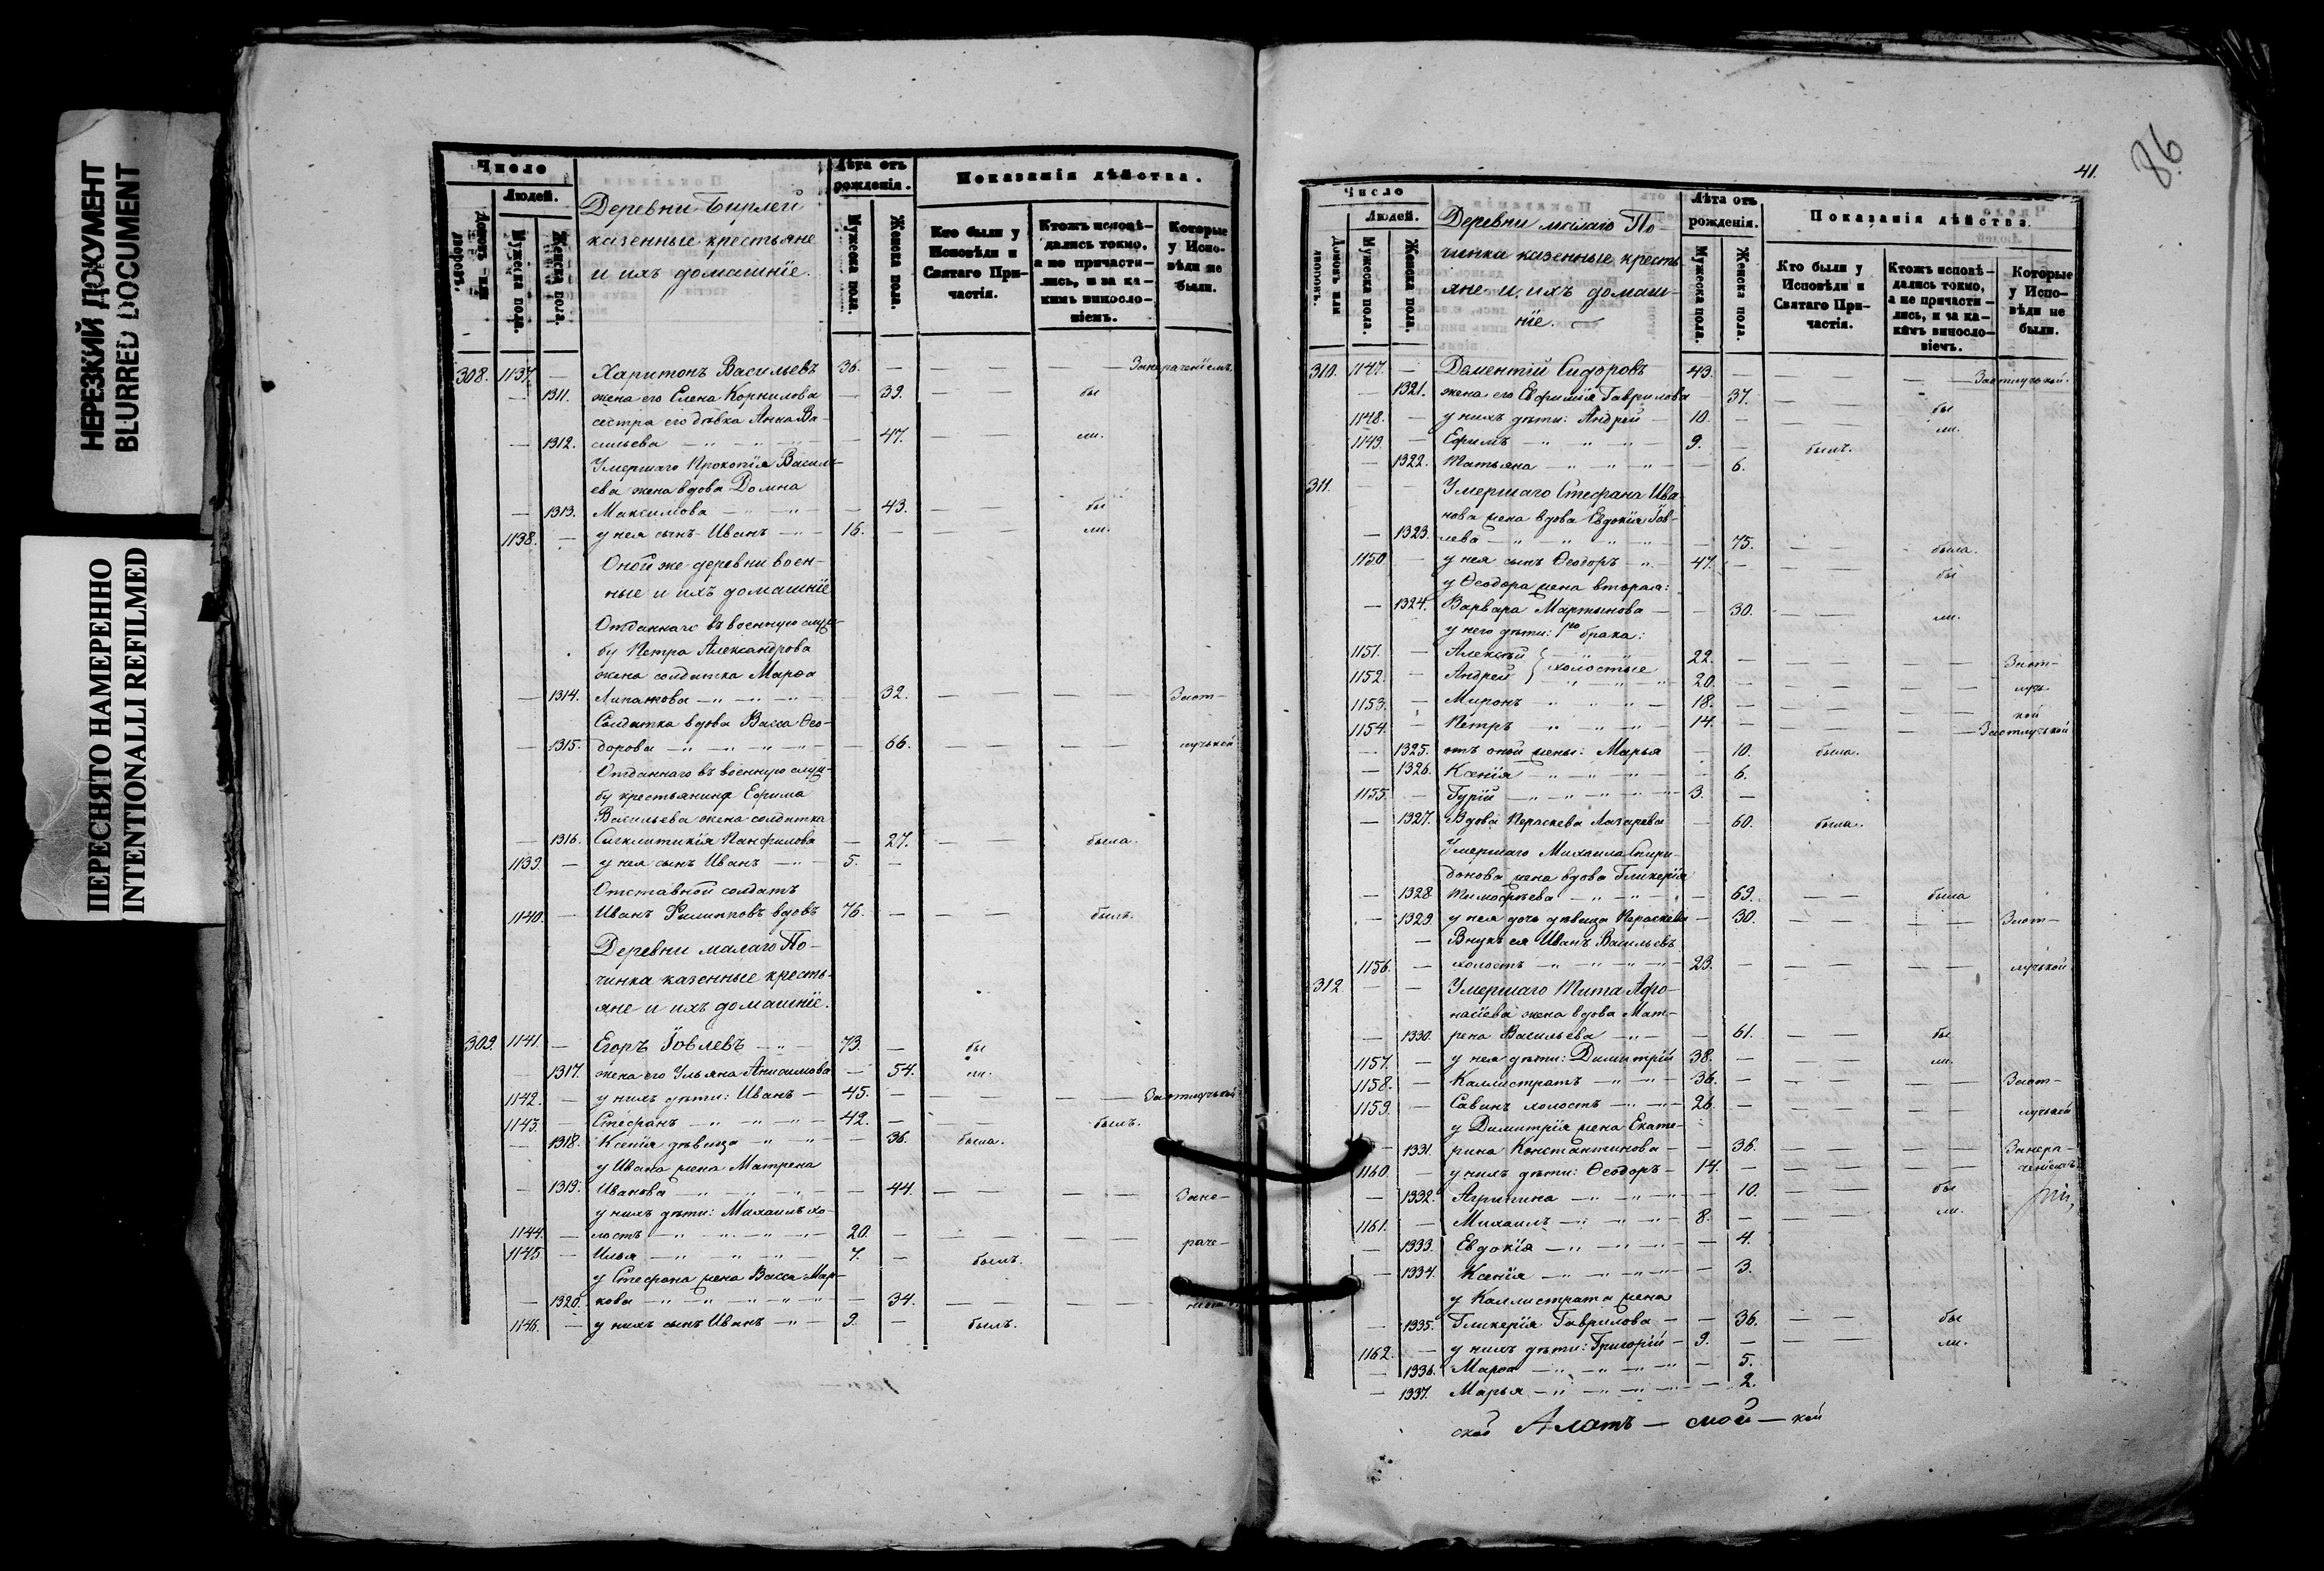 НЕРЕЗКИЙ ДОКУМЕНТ
BLURRED DOCUMENT
ПЕРЕСНЯТО НАМЕРЕННО
INTENTIONALLI REFILMED
Число
Людей.
Домовъ или дворовъ.
Мужеска пола.
Женска пола.
Деревни Бирлей
казенные крестьяне
и ихъ домашнїе.
Лѣта отъ рожденія.
Мужеска пола.
Женска пола.
Показанія дѣйства.
Кто были у Исповѣди и Святаго Причастія.
Ктожъ исповѣдались токмо, а не причастились, и за какимъ винословіемъ.
Которые у Исповѣди не были.
308. 1137. — Харитонъ Васильевъ 36. — — — — Занераченїемъ.
— 1311. жена его Елена Корнилова — 39. — — бы
сестра его дѣвка Анна Ва-
— 1312. сильева — 47. — — ли.
Умершаго Прокопїя Василь-
ева жена вдова Домна
— 1313. Максимова — 43. — — бы
1138. — у нея сынъ Иванъ — 16. — — — ли.
Оной же деревни воен-
ные и ихъ домашнїе
Отданнаго въ военную служ-
бу Петра Александрова
жена солдатка Марѳа
— 1314. — 32. — — — — Заот-
Солдатка вдова Васса Ѳео-
— 1315. дорова — 66. — — — — лучкой
Отданнаго въ военную служ-
бу крестьянина Ефима
Васильева жена солдатка
— 1316. Сигклитикїя Панфилова — 27. — — была.
1139. — у нея сынъ Иванъ — 5. —
Отставной солдатъ
1140. — Иванъ Филипповъ вдовъ 76. — — — былъ.
Деревни малаго По-
чинка казенные кресть-
яне и ихъ домашнїе.
309. 1141. — Егоръ Їовлевъ — 73. — бы
— 1317. жена его Ульяна Анисимова — 54. ли.
1142. — у нихъ дѣти: Иванъ — 45. — — — — — Заотлучкой
1143. — Стефанъ — 42. — — — былъ.
— 1318. Ксенїя дѣвица — 36. была.
у Ивана жена Матрена
— 1319. Иванова — 44. — — — — Зане-
у нихъ дѣти: Михаилъ хо-
1144. — лостъ — 20. — — — — — раче-
1145 — Илья — 7. — былъ.
у Стефана жена Васса Мар-
— 1320. кова — 34. — — — —
1146. — у нихъ сынъ Иванъ — 9. — былъ.
41.
86
Число
Людей.
Домовъ или дворовъ.
Мужеска пола.
Женска пола.
Деревни малаго По-
чинка казенные кресть-
яне и ихъ домаш-
нїе. —
Лѣта отъ рожденія.
Мужеска пола.
Женска пола.
Показанія дѣйства.
Кто были у Исповѣди и Святаго Причастія.
Ктожъ исповѣдались токмо, а не причастились, и за какимъ винословіемъ.
Которые у Исповѣди не были.
310. 1147. — Даментїй Сидоровъ 43. — — — Заотлучкой.
— 1321. жена его Евфимїя Гаврилова — 37. — бы
1148. — у нихъ дѣти: Андрей — 10. — — — ли.
1149. — Ефимъ — 9. — былъ.
— 1322. Татьяна — 6.
311. — — Умершаго Стефана Ива-
нова жена вдова Евдокїя Їов-
— 1323. лева — 75. — — была.
1150 — у нея сынъ Ѳеодоръ — 47. — — — бы
у Ѳеодора жена вторая:
— 1324. Варвара Мартынова — 30. — — ли.
у него дѣти: 1го брака:
1151. — Алексѣй } холостые 22. — — — Заот-
1152. — Андрей 20. — — — — — луч-
1153. — Миронъ — 18. — — — — — кой
1154. — Петръ — 14. — — — — Заотлучкой
— 1325. отъ оной жены: Марья — 10. была.
— 1326. Ксенїя — 6.
1155. — Гурїй — 3. —
— 1327. Вдова Параскева Лазарева — 60. была.
Умершаго Михаила Спири-
донова жена вдова Гликерїя
— 1328 Тимофѣева — 69. — — была
— 1329. у нея дочь дѣвица Параскева — 30. — — — — Заот-
— Внукъ ея Иванъ Васильевъ
1156. — холостъ — 23. — — — — — лучкой
312. — — Умершаго Тита Афо-
насїева жена вдова Мат-
— 1330. рена Васильева — 61. — — бы
1157. — у нея дѣти: Димитрїй 38. — — — ли.
1158. — Каллистратъ — 36. — — — — — Заот-
1159. — Савинъ холостъ — 26. — — — — — лучкой
у Димитрїя жена Екате-
— 1331. рина Константинова — 36. — — — — Занера-
1160. — у нихъ дѣти: Ѳеодоръ — 14. — — — — — ченїемъ
— 1332. Агрипина — 10. — — бы
1161. — Михаилъ — 8. — — — ли.
— 1333. Евдокїя — 4.
— 1334. Ксенїя — 3.
у Каллистрата жена
— 1335. Гликерїя Гаврилова — 36. — — бы
1162. — у нихъ дѣти: Григорїй — 9. — — — ли.
— 1336. Марѳа — 5.
— 1337. Марья — 2.